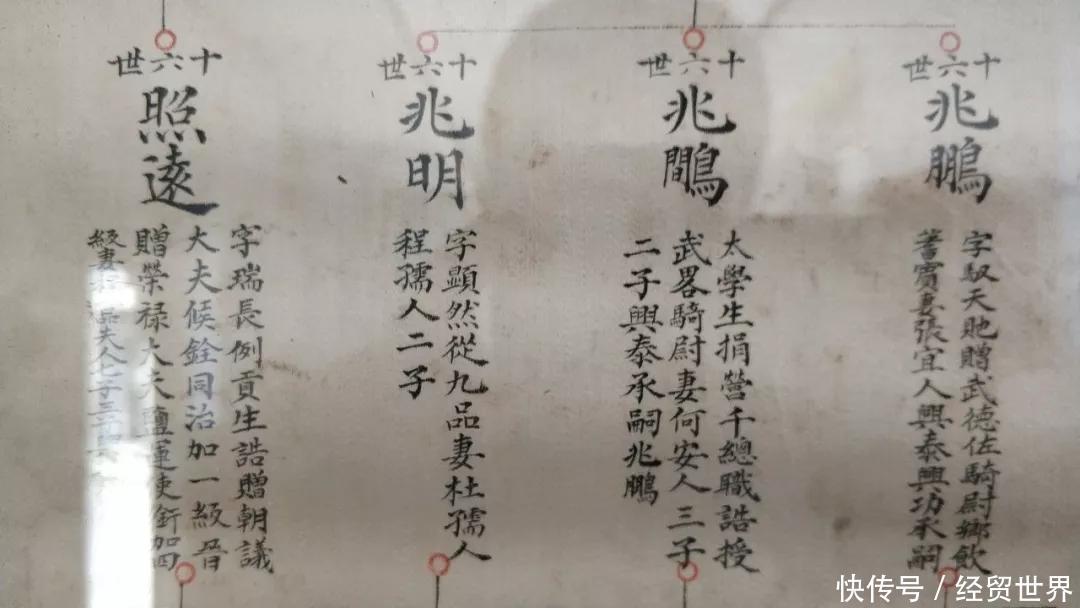 十六世
兆鵬
字馭天貤贈武德佐騎尉鄉飲
耆賓妻張宜人興泰興功承嗣
十六世
兆鷳
太學生捐營千總職誥授
武畧騎尉妻何安人三子
二子興泰承嗣兆鵬
十六世
兆明
字顯然從九品妻杜孺人
程孺人二子
十六世
照遠
字瑞長例貢生誥贈朝議
大夫候銓同治加一級晉
贈榮禄大夫鹽運使銜加四
級妻 品夫人七子三
快传号 / 经贸世界